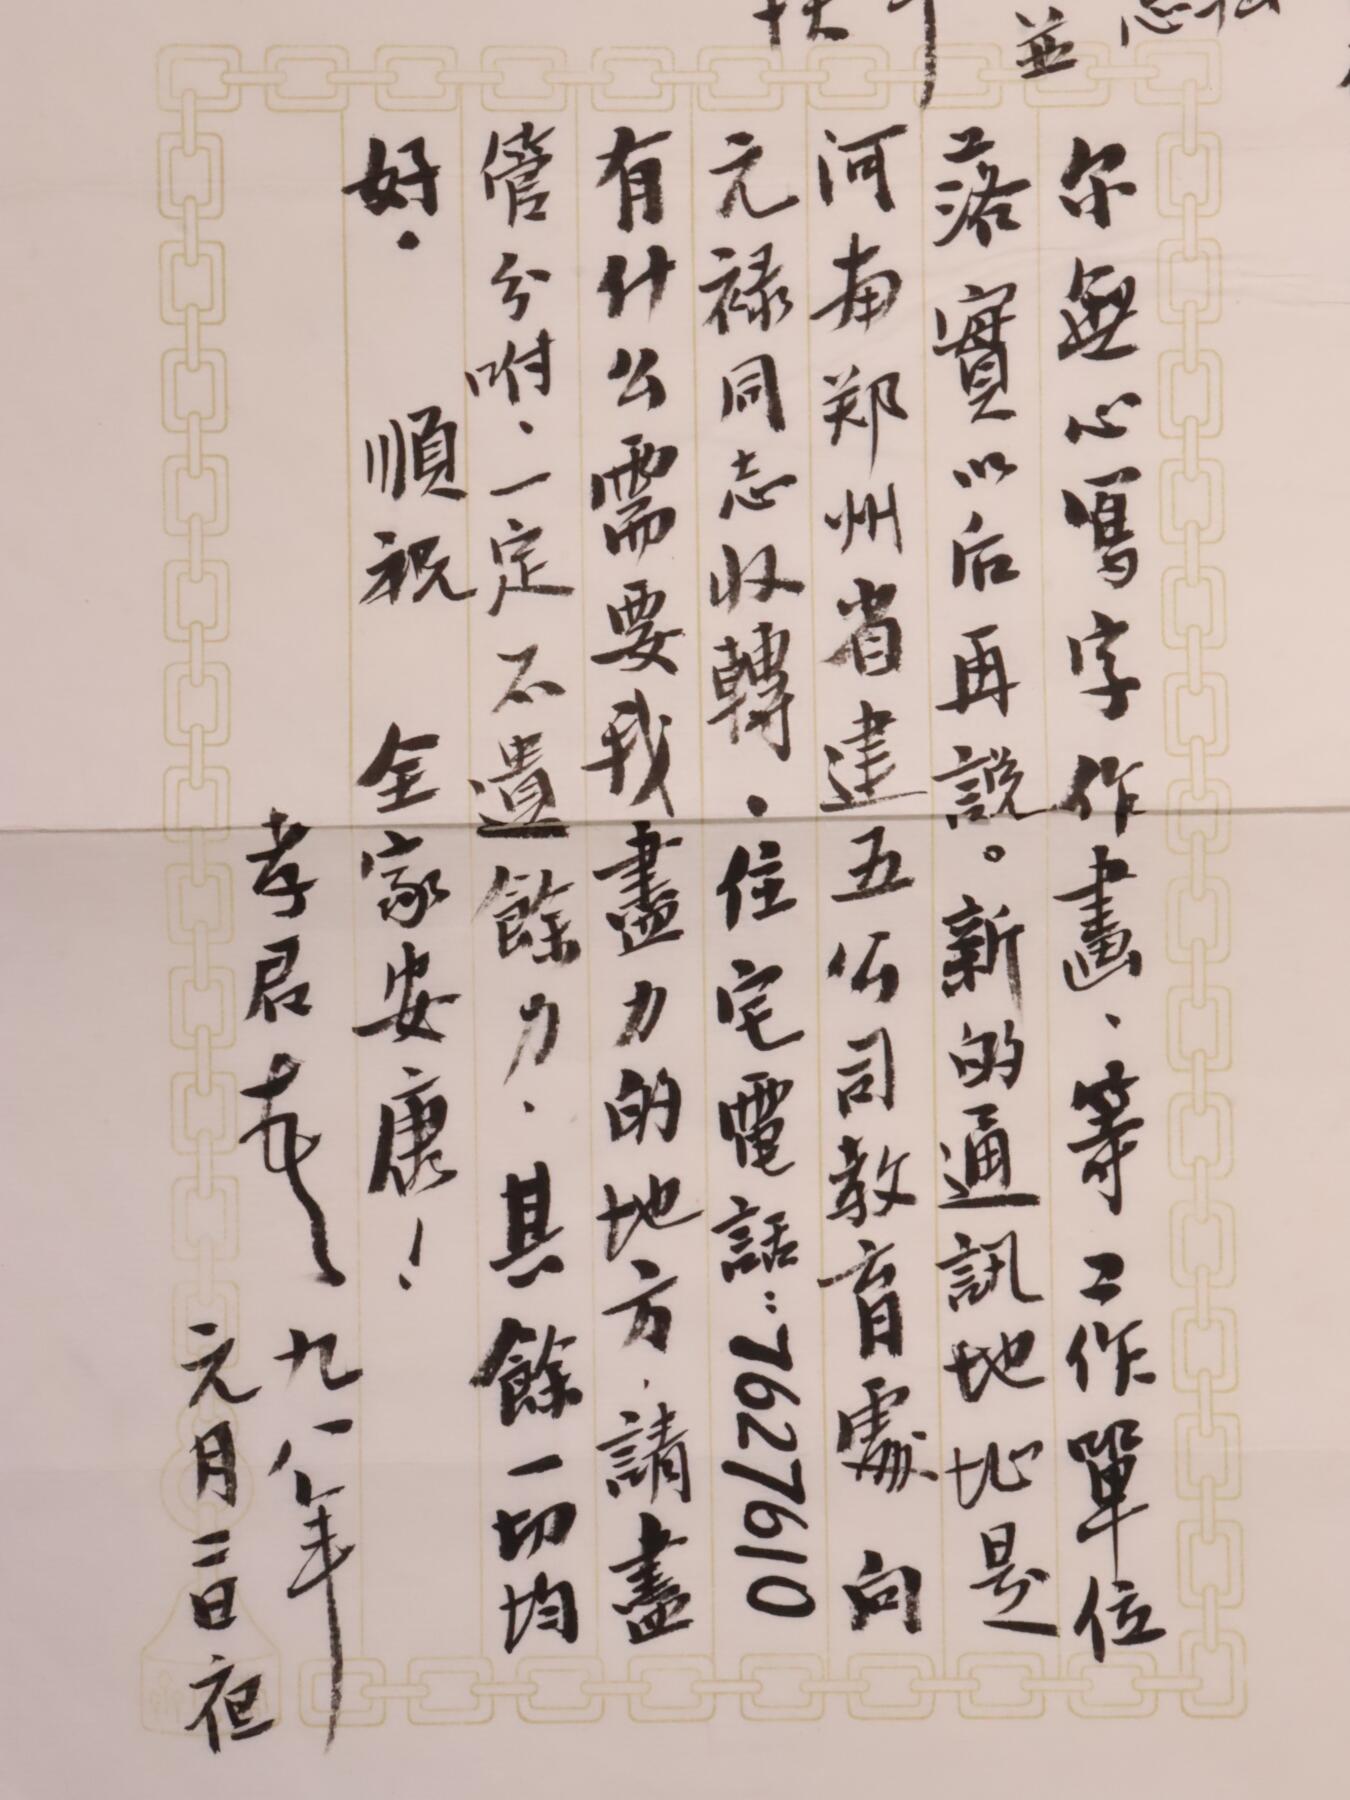 並
尔無心寫字作畫、等工作單位
落實以后再説。新的通訊地址是
河南郑州省建五公司教育處向
元禄同志收轉．住宅電話：7627610
有什么需要我盡力的地方．請盡
管分咐、一定不遺餘力．其餘一切均
好．順祝全家安康！
孝君 九八年
元月三日夜